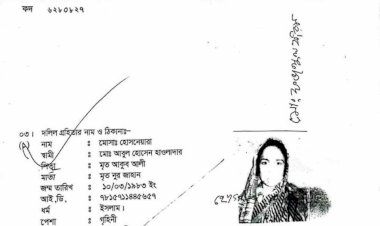 কদ ৬২৪০৮২৭
০৩। দলিল গ্রহিতার নাম ও ঠিকানাঃ-
নাম : মোসাঃ হোসনেয়ারা
স্বামী : মোঃ আবুল হোসেন হাওলাদার
পিতা : মৃত আকুব আলী
মাতা : মৃত নুর জাহান
জন্ম তারিখ : ১০/০৩/১৯৮৩ ইং
আই,ডি, : ৭৮১৫৭১১৪৪৫৬৫৭
ধর্ম : ইসলাম।
পেশা : গৃহিনী